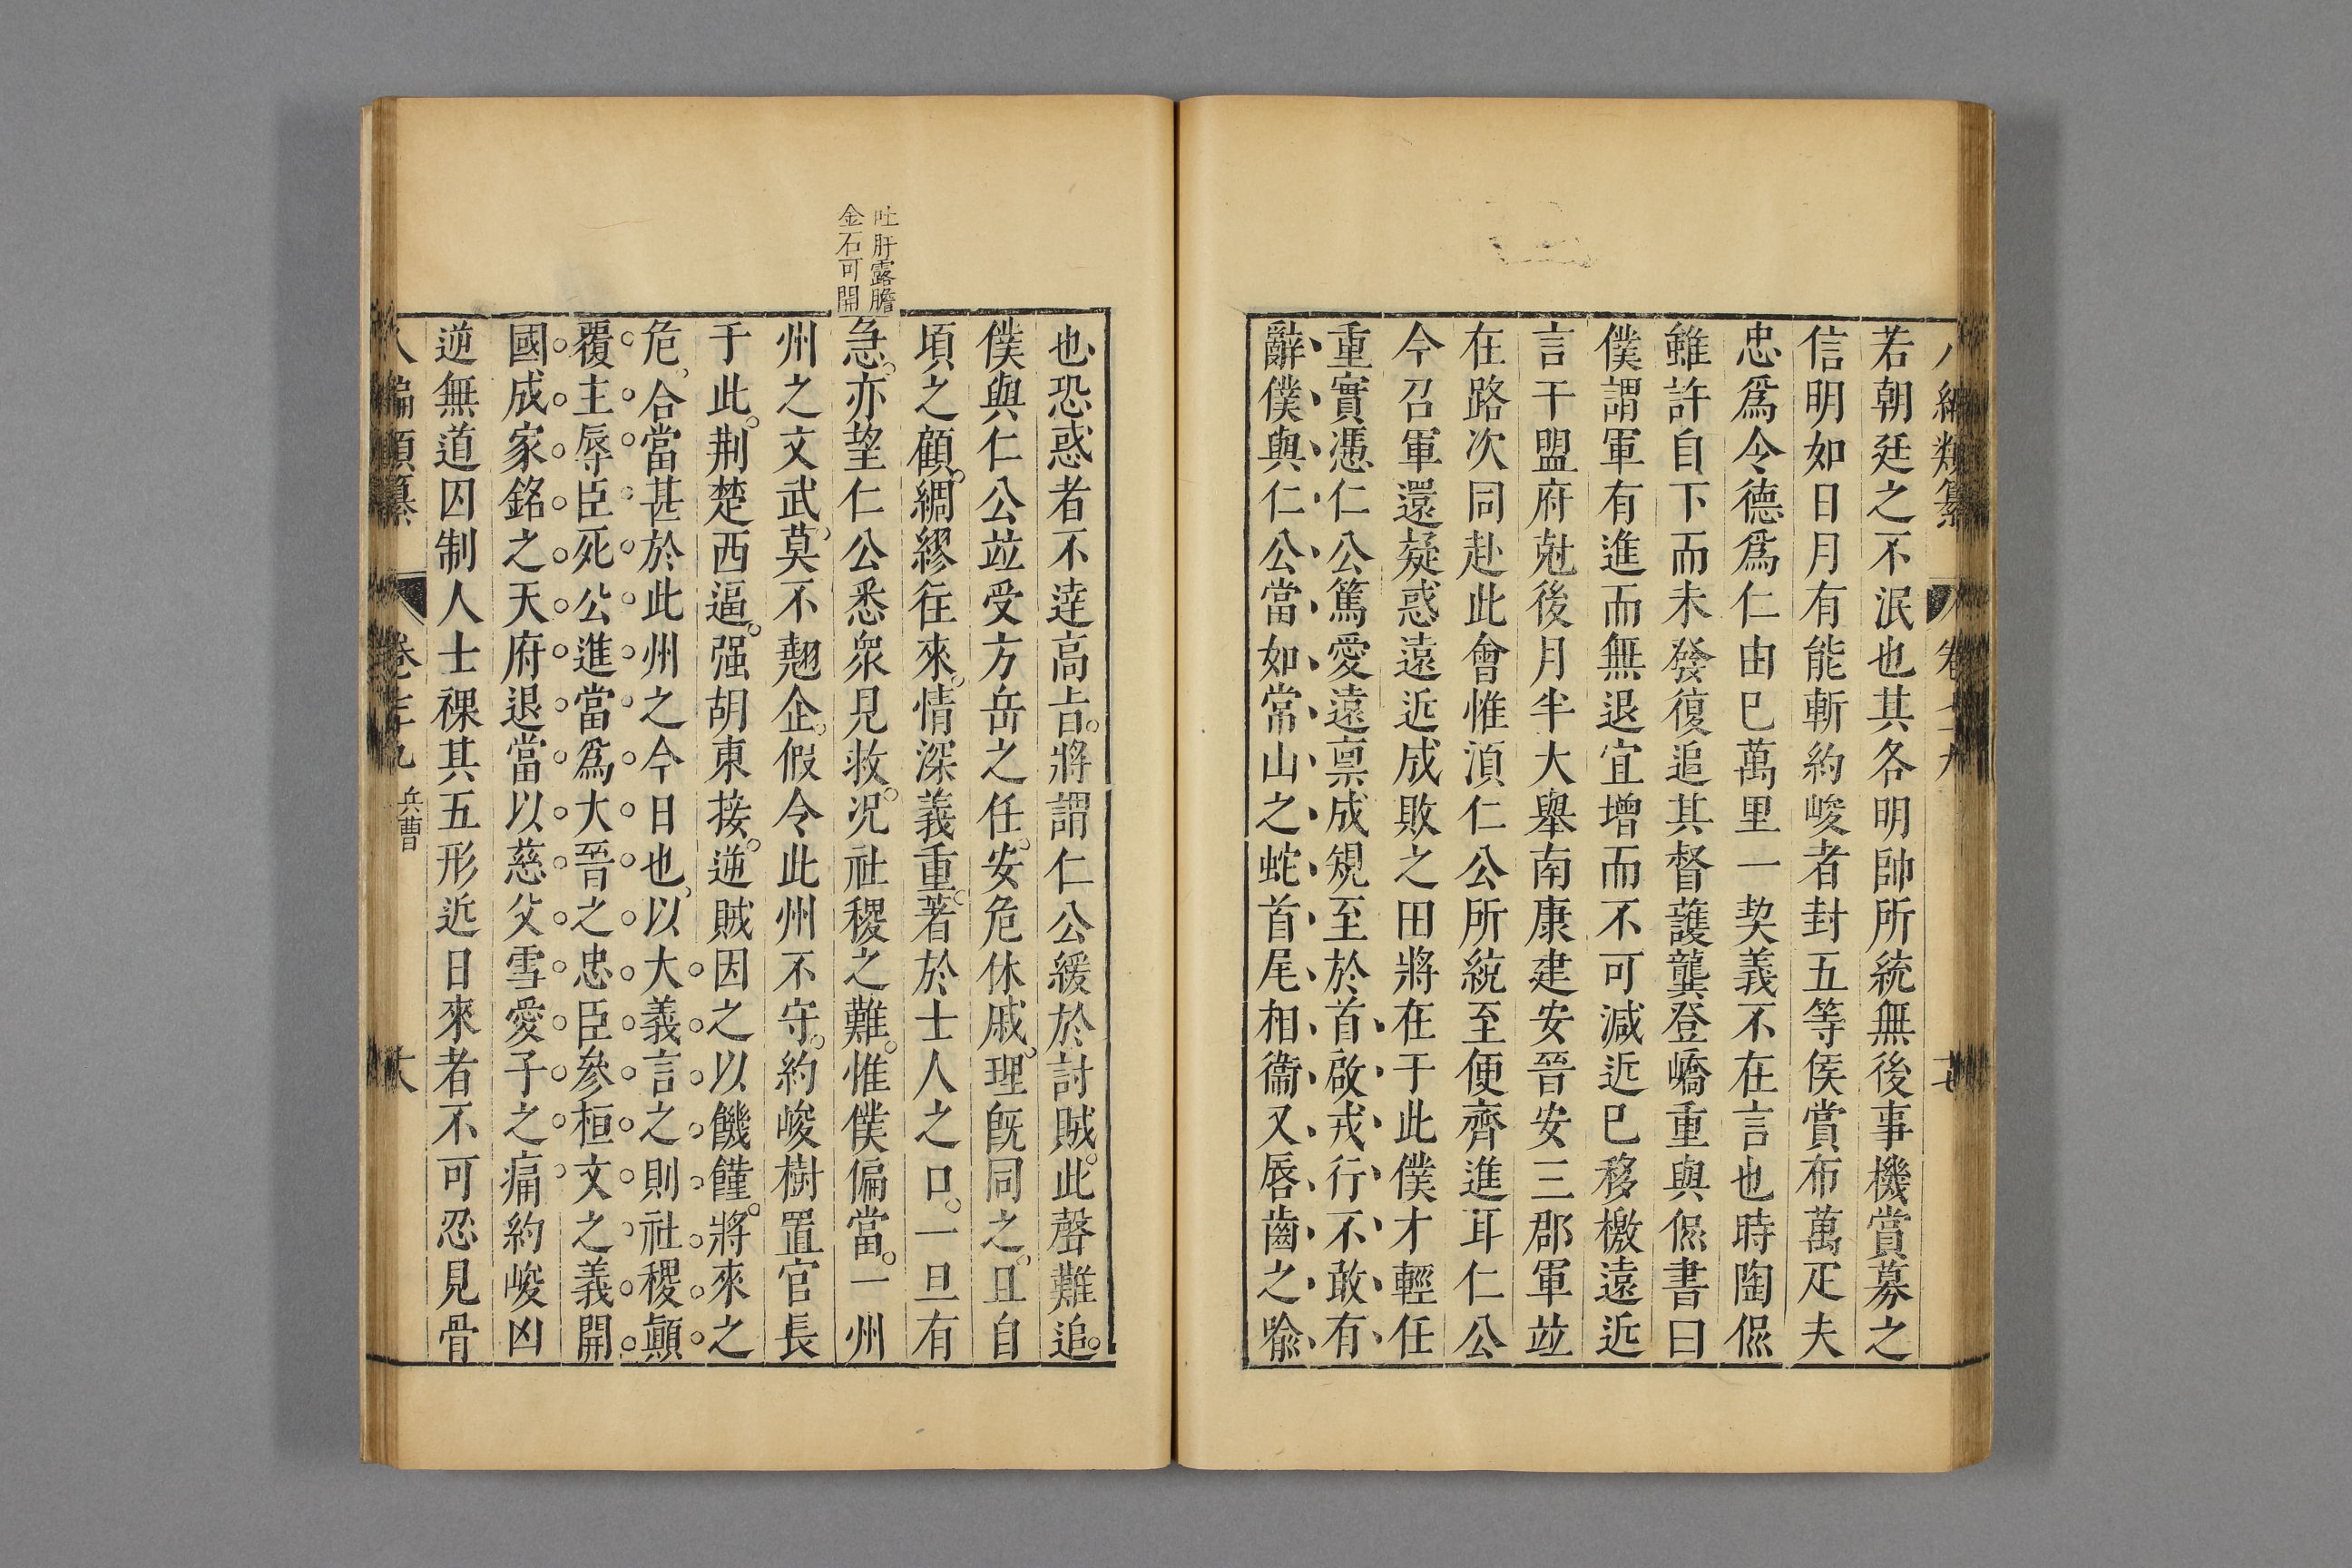 若朝廷之不泯也其各明帥所統無後事機賞募之
信明如日月有能斬約峻者封五等侯賞布萬疋夫
忠爲令德爲仁由已萬里一契義不在言也時陶侃
雖許自下而未發復追其督護龔登嶠重與侃書曰
僕謂軍有進而無退宜增而不可減近已移檄遠近
言干盟府尅後月半大舉南康建安晉安三郡軍竝
在路次同赴此會惟須仁公所統至便齊進耳仁公
今召軍還疑惑遠近成敗之由將在于此僕才輕任
重實憑仁公篤愛遠禀成規至於首啟戎行不敢有
辭僕與仁公當如常山之蛇首尾相衞又唇齒之喻
也恐惑者不達高旨將謂仁公緩於討賊此聲難追
僕與仁公竝受方岳之任安危休戚理旣同之且自
頃之顧綢繆往來情深義重著於士人之口一旦有
吐肝露膽
金石可開
急亦望仁公悉衆見救况社稷之難惟僕偏當一州
州之文武莫不翹企假令此州不守約峻樹置官長
于此荆楚西逼强胡東接逆賊因之以饑饉將來之
危合當甚於此州之今日也以大義言之則社稷顚
覆主辱臣死公進當爲大晉之忠臣參桓文之義開
國成家銘之天府退當以慈父雪愛子之痛約峻凶
逆無道囚制人士裸其五形近日來者不可忍見骨
八編類纂 卷 兵曹